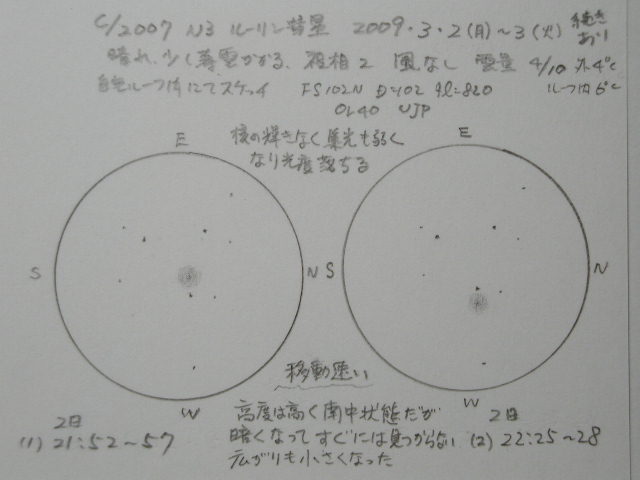 C/2007 N3 ルーリン彗星 2009・3・2(月)～3(火) 続きあり
晴れ、少し薄雲かかる、夜相2 風なし 雲量 4/10 外4℃
自宅ルーフ内にてスケッチ FS102N D=102 fl=820 ルーフ内6℃
OL40 UJP
核の輝きなく集光も弱く
なり光度落ちる
E
E
S
N
S
N
W
W
移動速い
2日
(1) 21:52～57
高度は高く南中状態だが
暗くなってすぐには見つからない
広がりも小さくなった
2日
(2) 22:25～28